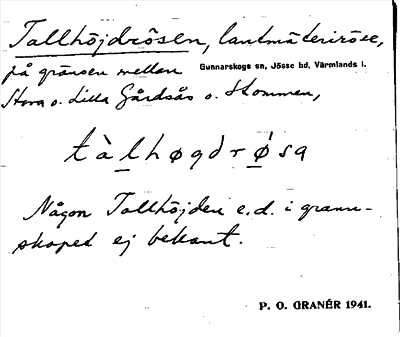 Tallhöjdrösen, lantmäteriröse,
på gränsen mellan Gunnarskogs sn, Jösse hd, Värmlands l.
Stora o. Lilla Gårdsås o. Skommen,
tàlhøgdrǿsa
Någon Tallhöjden e.d. i grann-
skapet ej bekant.
P. O. GRANÉR 1941.